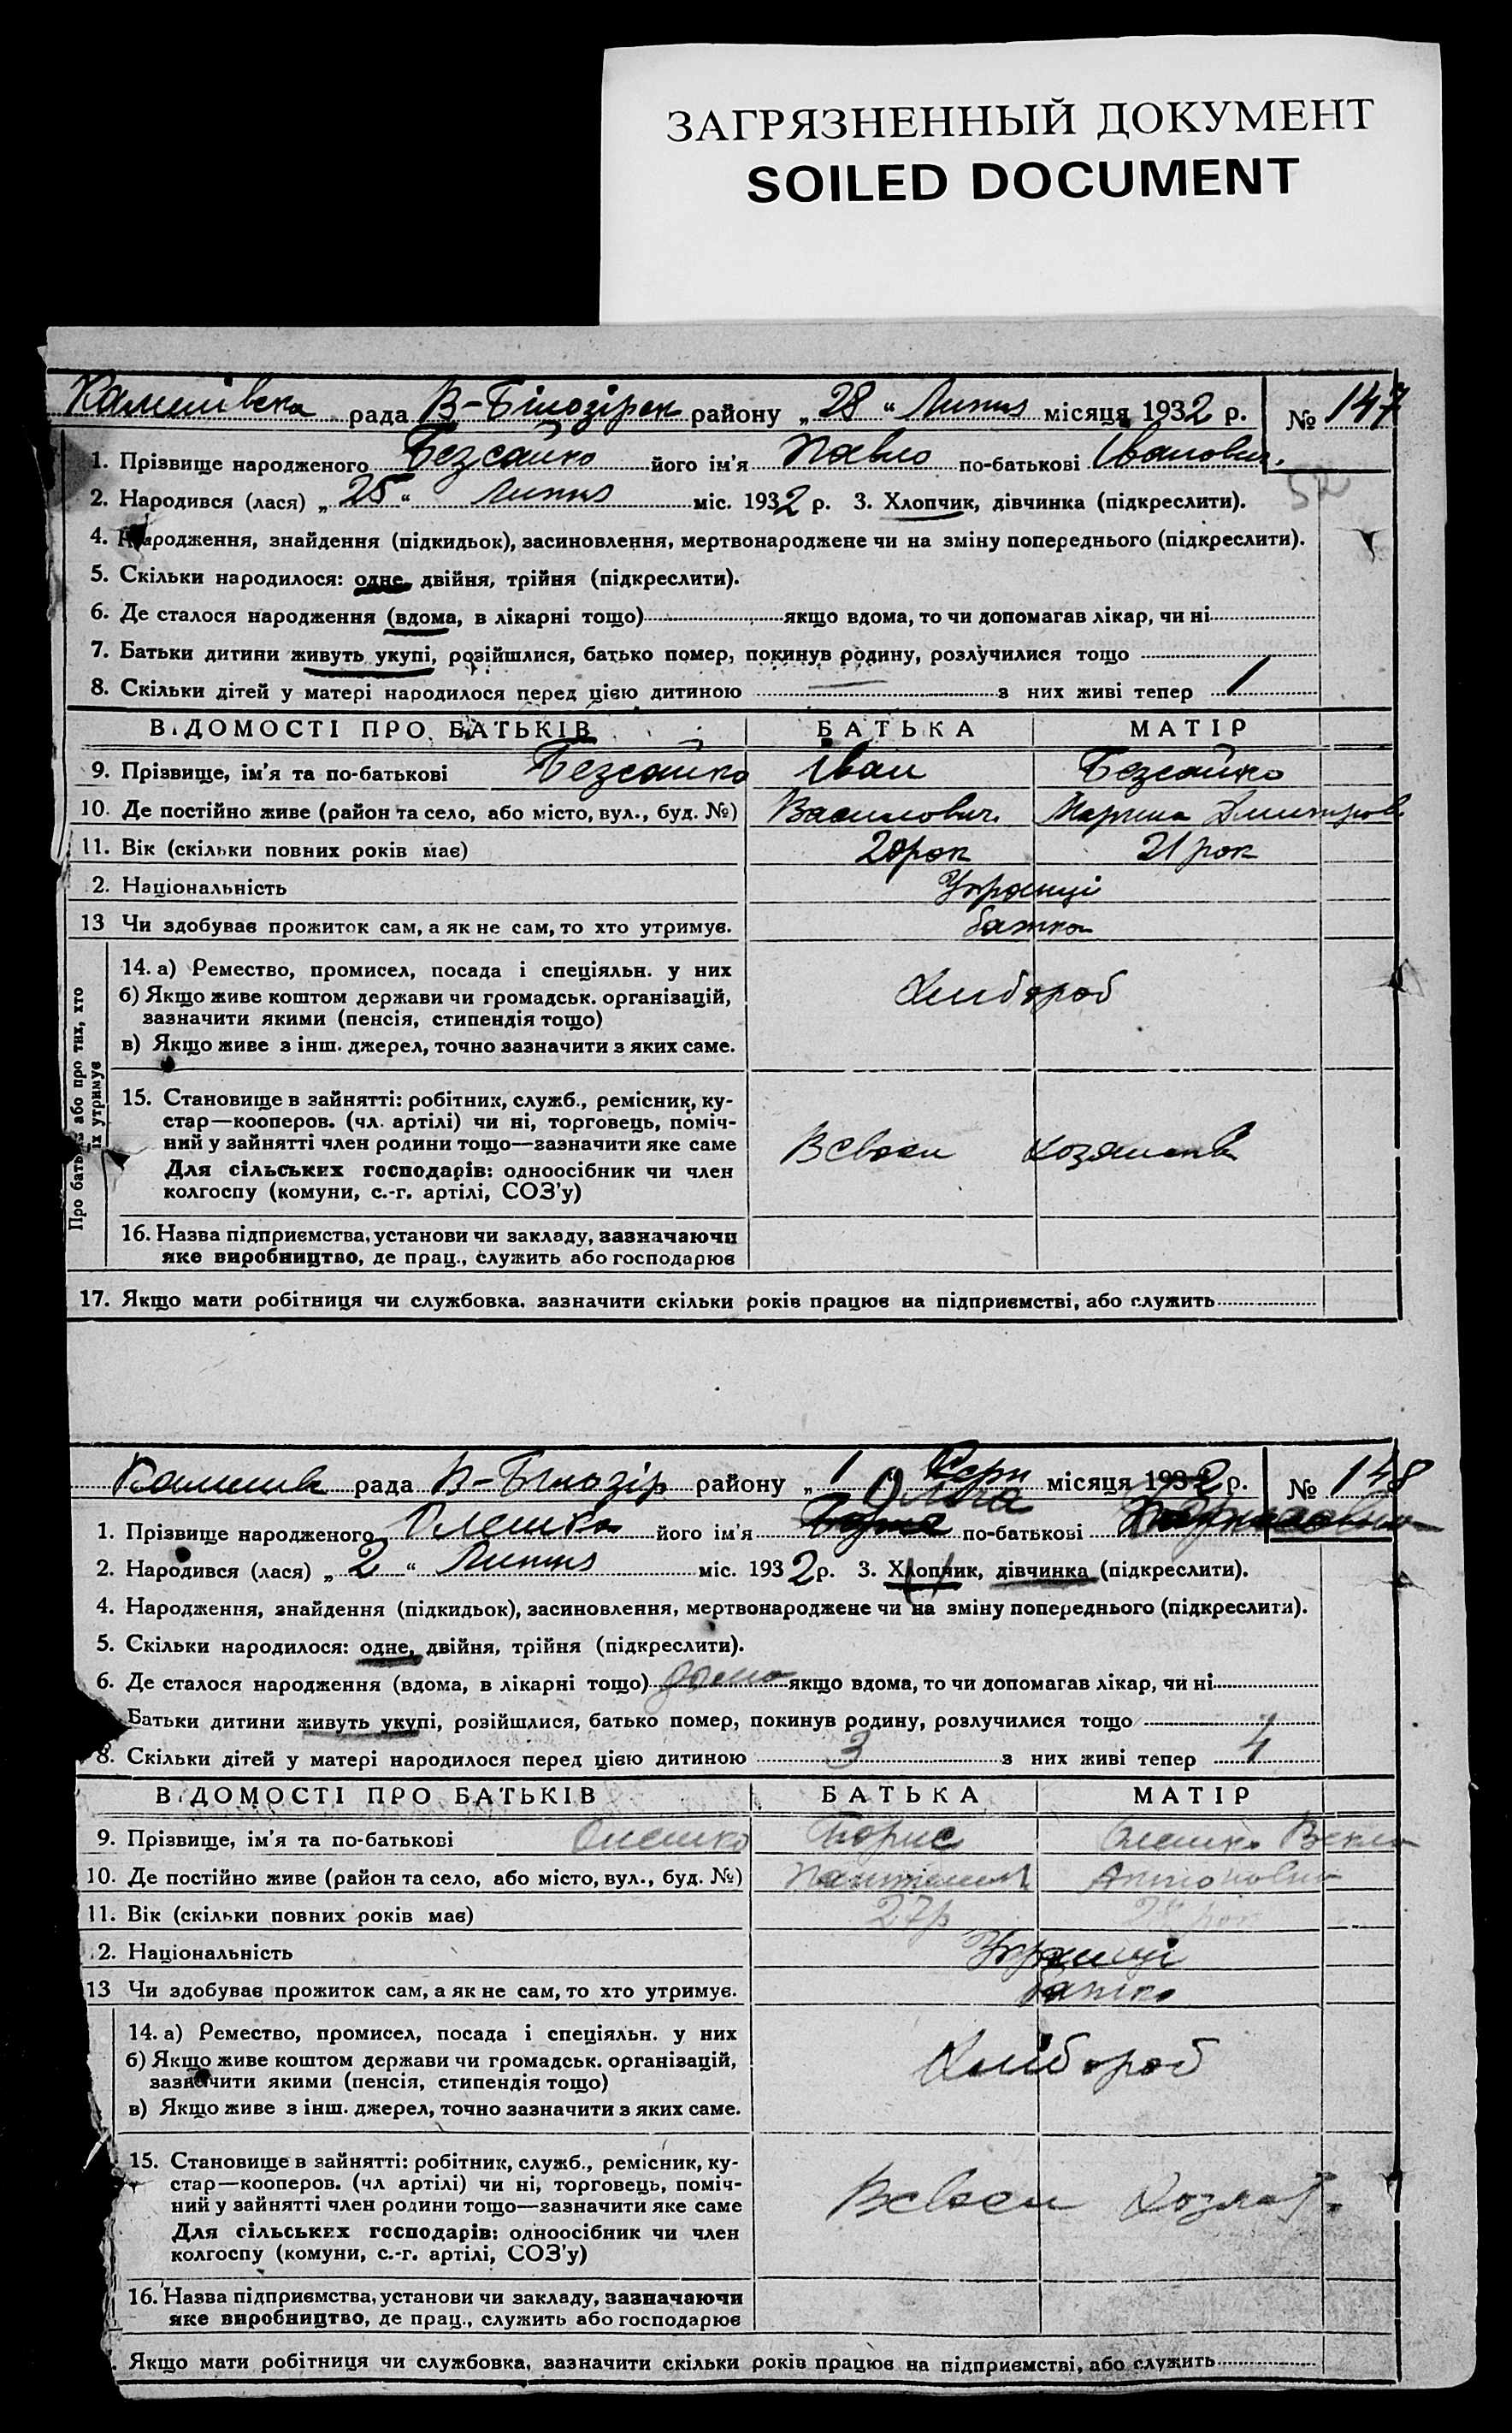 ЗАГРЯЗНЕННЫЙ ДОКУМЕНТ
SOILED DOCUMENT
рада В-Білозірск району „28“ Липня місяця 1932 р. № 147
1. Прізвище народженого Безсайко його ім'я Павло по-батькові Іванович.
52
2. Народився (лася) „25“ Липня міс. 1932 р. 3. Хлопчик, дівчинка (підкреслити).
4. Народження, знайдення (підкидьок), засиновлення, мертвонароджене чи на зміну попереднього (підкреслити).
5. Скільки народилося: одне, двійня, трійня (підкреслити).
6. Де сталося народження (вдома, в лікарні тощо) якщо вдома, то чи допомагав лікар, чи ні
7. Батьки дитини живуть укупі, розійшлися, батько помер, покинув родину, розлучилися тощо
8. Скільки дітей у матері народилося перед цією дитиною — з них живі тепер 1
ВІДОМОСТІ ПРО БАТЬКІВ БАТЬКА МАТІР
9. Прізвище, ім'я та по-батькові Безсайко Іван Безсайко
10. Де постійно живе (район та село, або місто, вул., буд. №) Василович. Марина Дмитров.
11. Вік (скільки повних років має) 20 рок 21 рок
2. Національність Українці
13 Чи здобуває прожиток сам, а як не сам, то хто утримує. батько
Про батьків або про тих, хто
їх утримує
14. а) Ремество, промисел, посада і спеціяльн. у них
б) Якщо живе коштом держави чи громадськ. організацій,
зазначити якими (пенсія, стипендія тощо)
Хлибороб
в) Якщо живе з інш. джерел, точно зазначити з яких саме.
15. Становище в зайнятті: робітник, служб., ремісник, ку-
стар—кооперов. (чл. артілі) чи ні, торговець, поміч-
ний у зайнятті член родини тощо—зазначити яке саме
Всвоєм
Для сільських господарів: одноосібник чи член
колгоспу (комуни, с.-г. артілі, СОЗ'у)
16. Назва підприємства, установи чи закладу, зазначаючи
яке виробництво, де прац., служить або господарює
17. Якщо мати робітниця чи службовка, зазначити скільки років працює на підприємстві, або служить
рада В-Білозір району „1 Серп місяця 1932 р. № 148
Ольга
1. Прізвище народженого Олешко його ім'я по-батькові
2. Народився (лася) „2“ Липня міс. 1932 р. 3. Хлопчик, дівчинка (підкреслити).
4. Народження, знайдення (підкидьок), засиновлення, мертвонароджене чи на зміну попереднього (підкреслити).
5. Скільки народилося: одне, двійня, трійня (підкреслити).
6. Де сталося народження (вдома, в лікарні тощо) дома якщо вдома, то чи допомагав лікар, чи ні
Батьки дитини живуть укупі, розійшлися, батько помер, покинув родину, розлучилися тощо
8. Скільки дітей у матері народилося перед цією дитиною 3 з них живі тепер 4
ВІДОМОСТІ ПРО БАТЬКІВ БАТЬКА МАТІР
9. Прізвище, ім'я та по-батькові Олешко Борис Олешко Векла
10. Де постійно живе (район та село, або місто, вул., буд. №) Антоновна
11. Вік (скільки повних років має) 27р
2. Національність Українці
13 Чи здобуває прожиток сам, а як не сам, то хто утримує. батько
14. а) Ремество, промисел, посада і спеціяльн. у них
б) Якщо живе коштом держави чи громадськ. організацій,
зазначити якими (пенсія, стипендія тощо)
Хлібороб
в) Якщо живе з інш. джерел, точно зазначити з яких саме.
15. Становище в зайнятті: робітник, служб., ремісник, ку-
стар—кооперов. (чл артілі) чи ні, торговець, поміч-
ний у зайнятті член родини тощо—зазначити яке саме
Всвоєм
Для сільських господарів: одноосібник чи член
колгоспу (комуни, с.-г. артілі, СОЗ'у)
16. Назва підприємства, установи чи закладу, зазначаючи
яке виробництво, де прац., служить або господарює
Якщо мати робітниця чи службовка, зазначити скільки років працює на підприємстві, або служить